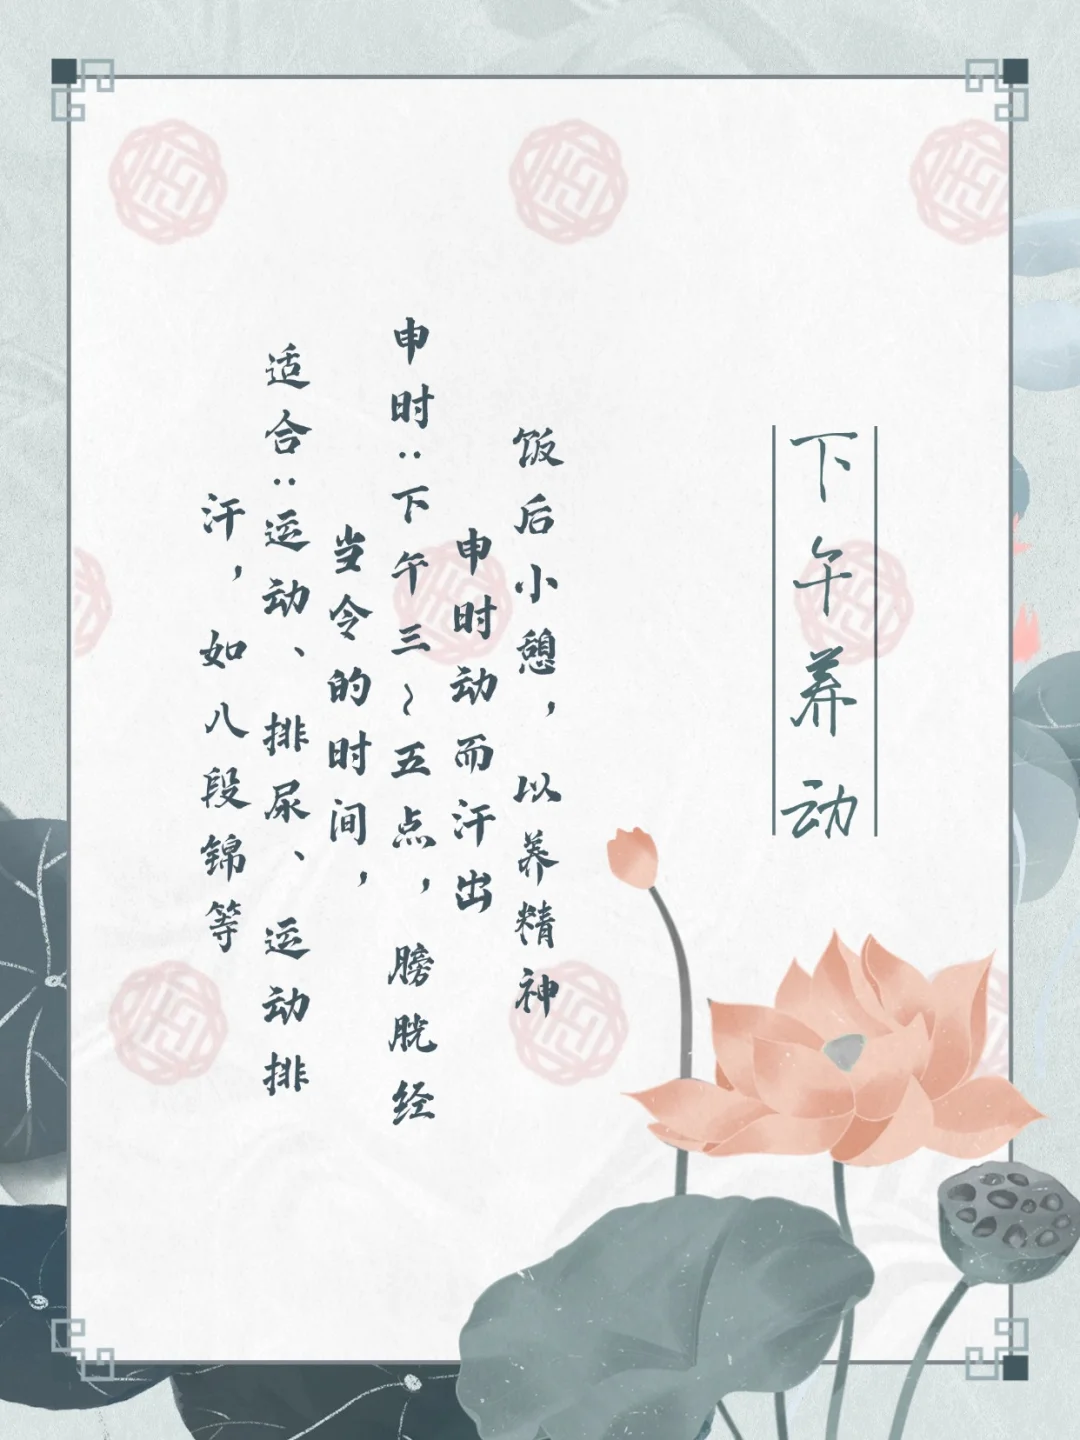 下午养动
饭后小憩，以养精神
申时动而汗出
申时：下午三~五点，膀胱经
当令的时间，
适合：运动、排尿、运动排
汗，如八段锦等